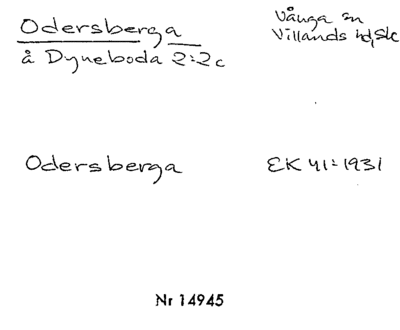 Odersberga
Vånga sn
Villands hd, Sk
å Dyneboda 2:2c
Odersberga
EK 41:1931
Nr 14945